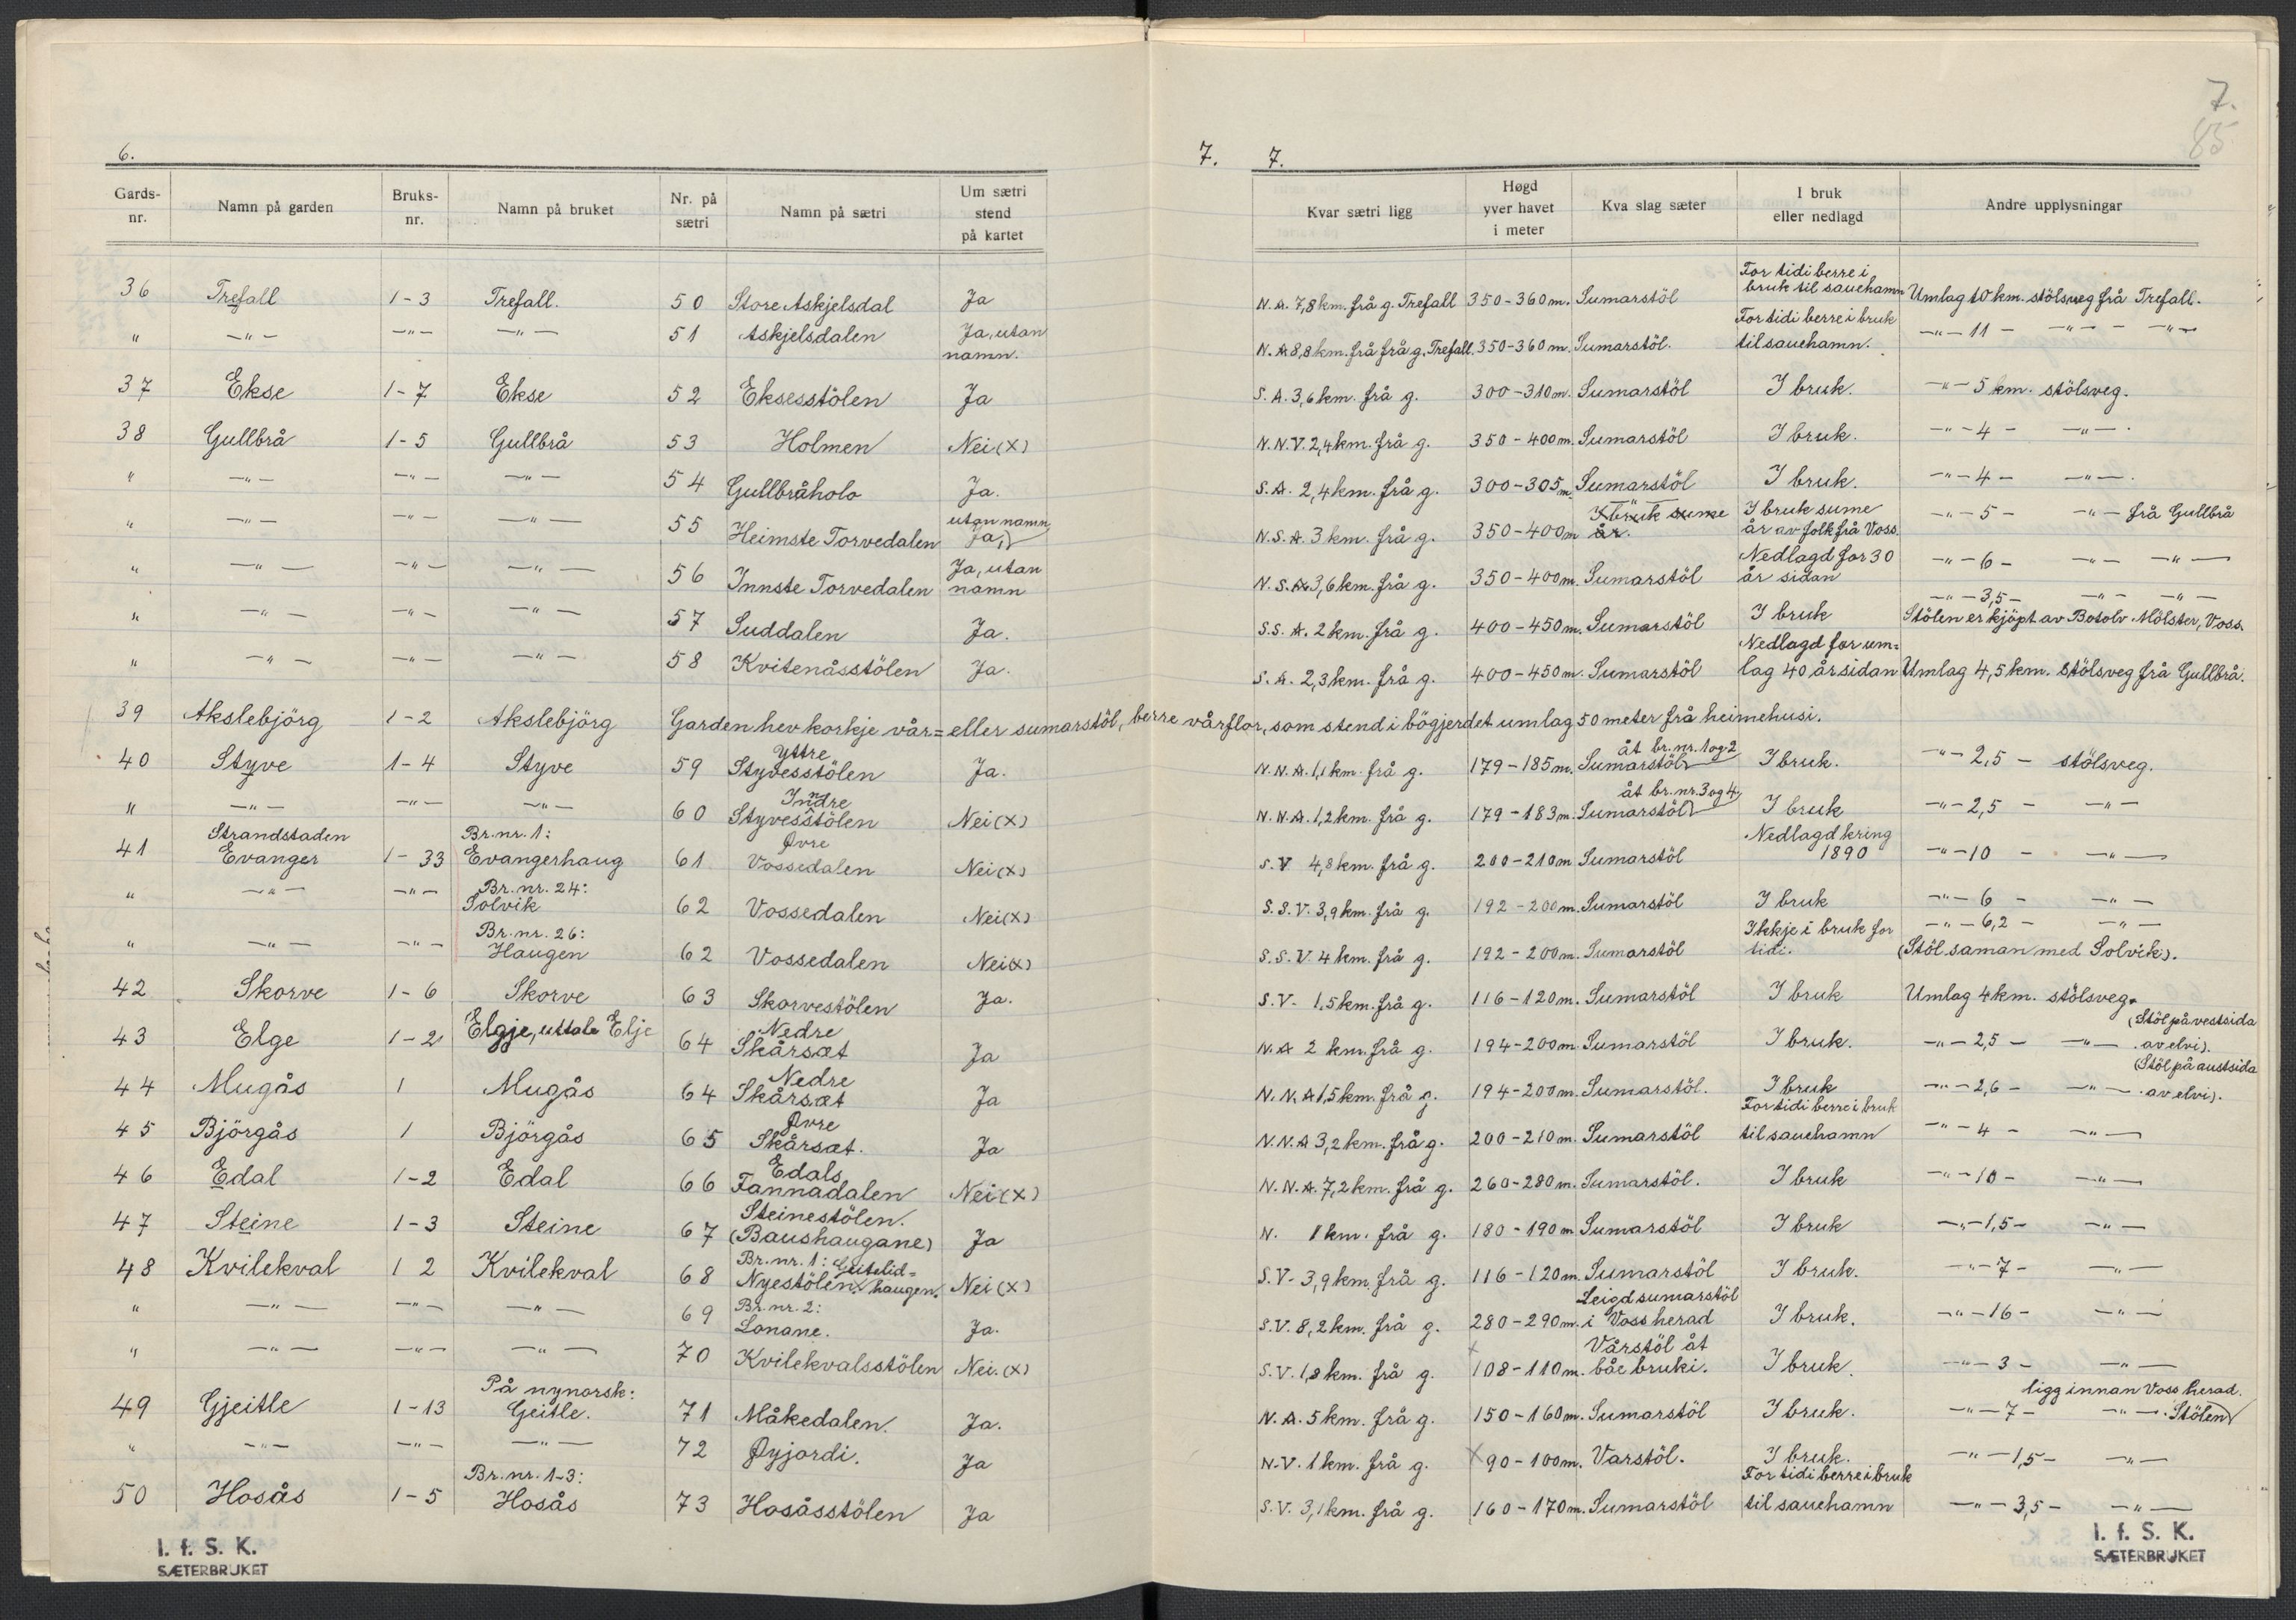 6.
Gards-nr. Namn på garden Bruks-nr. Namn på bruket Nr. på sætri Namn på sætri Um sætri stend på kartet
36 Trefall 1-3 Trefall. 50 Store Askjelsdal Ja
" -"- -"- -"- 51 Askjelsdalen Ja, utan namn.
37 Ekse 1-7 Ekse 52 Eksesstölen Ja
38 Gullbrå 1-5 Gullbrå 53 Holmen Nei (x)
" -"- -"- -"- 54 Gullbråholo Ja.
" -"- -"- -"- 55 Heimste Torvedalen Ja, utan namn
" -"- -"- -"- 56 Innste Torvedalen Ja, utan namn
" -"- -"- -"- 57 Suddalen Ja.
" -"- -"- -"- 58 Kvitenåsstölen Ja.
39 Akslebjörg 1-2 Akslebjörg Garden hev korkje vår= eller sumarstöl, berre vårflor, som stend i bögjerdet umlag 50 meter frå heimehusi.
40 Styve 1-4 Styve 59 Yttre Styvesstölen Ja.
" -"- -"- -"- 60 Indre Styvesstölen Nei (x)
41 Strandstaden Evanger 1-33 Br.nr. 1: Evangerhaug 61 Øvre Vossedalen Nei (x)
" -"- -"- Br.nr. 24: Solvik 62 Vossedalen Nei (x)
" -"- -"- Br.nr. 26: Haugen 62 Vossedalen Nei (x)
42 Skorve 1-6 Skorve 63 Skorvestölen Ja.
43 Elge 1-2 Elgje, uttale Elje 64 Nedre Skårsæt Ja
44 Mugås 1 Mugås 64 Nedre Skårsæt Ja
45 Björgås 1 Björgås 65 Øvre Skårsæt. Ja
46 Edal 1-2 Edal 66 Edals Fannadalen Nei (x)
47 Steine 1-3 Steine 67 Steinestölen. (Baushaugane) Ja
48 Kvilekval 1 2 Kvilekval 68 Br.nr. 1: Nyestölen. Geitelid=haugen. Nei (x)
" -"- -"- -"- 69 Br.nr. 2: Lonane. Ja.
" -"- -"- -"- 70 Kvilekvalsstölen Nei. (x)
49 Gjeitle 1-13 På nynorsk: Geitle. 71 Måkedalen. Ja.
" -"- -"- -"- 72 Øyjordi. Ja
50 Hosås 1-5 Br.nr. 1-3: Hosås 73 Hosåsstölen Ja
I. f. S. K.
SÆTERBRUKET
7.
85
7. 7.
Kvar sætri ligg Høgd yver havet i meter Kva slag sæter I bruk eller nedlagd Andre upplysningar
N.A. 7,8 km. frå g. Trefall 350-360 m. Sumarstöl For tidi berre i bruk til sauehamn Umlag 10 km. stölsveg frå Trefall.
N.A. 8,8 km. frå frå g. Trefall. 350-360 m. Sumarstöl. For tidi berre i bruk til sauehamn. -"- 11 - -"- - -"-
S.A. 3,6 km. frå g. 300-310 m. Sumarstöl I bruk. -"- 5 km. stölsveg.
N.N.V. 2,4 km. frå g. 350-400 m. Sumarstöl I bruk. -"- 4 - -"- .
S.A. 2,4 km. frå g. 300-305 m. Sumarstöl I bruk. -"- 4 - -"- .
N.S.A. 3 km. frå g. 350-400 m I bruk sume år. I bruk sume år av folk frå Voss. -"- 5 - -"- frå Gullbrå
N.S.A. 3,6 km. frå g. 350-400 m. Sumarstöl Nedlagd for 30 år sidan -"- 6 - -"- -"-
S.S.A. 2 km. frå g. 400-450 m. Sumarstöl I bruk -"- 3,5 - -"- -"- Stölen er kjöpt av Botolv Mölster, Voss.
S.A. 2,3 km. frå g. 400-450 m. Sumarstöl Nedlagd for um=lag 40 år sidan Umlag 4,5 km. stölsveg frå Gullbrå.
N.N.A. 1,1 km. frå g. 179-185 m. Sumarstöl åt br.nr. 1 og 2 I bruk. -"- 2,5 - stölsveg.
N.N.A. 1,2 km. frå g. 179-183 m. Sumarstöl åt br.nr. 3 og 4 I bruk -"- 2,5 - -"-
S.V 4,8 km. frå g. 200-210 m Sumarstöl Nedlagd kring 1890 -"- 10 - -"-
S.S.V. 3,9 km. frå g. 192-200 m. Sumarstöl I bruk -"- 6 - -"-
S.S.V. 4 km. frå g. 192-200 m. Sumarstöl Ikkje i bruk for tidi. -"- 6,2 - -"- (Stöl saman med Solvik).
S.V. 1,5 km. frå g. 116-120 m. Sumarstöl I bruk Umlag 4 km. stölsveg.
N.A 2 km. frå g. 194-200 m. Sumarstöl I bruk. -"- 2,5 - -"- (Stöl på vestsida av elvi).
N.N.A 1,5 km. frå g. 194-200 m. Sumarstöl. I bruk -"- 2,6 - -"- (Stöl på austsida av elvi).
N.N.A 3,2 km. frå g. 200-210 m. Sumarstöl For tidi berre i bruk til sauehamn -"- 4 - -"-
N.N.A. 7,2 km. frå g. 260-280 m. Sumarstöl. I bruk -"- 10 - -"-
N. 1 km. frå g. 180-190 m Sumarstöl I bruk -"- 1,5 - -"-
S.V. 3,9 km. frå g. 116-120 m. Sumarstöl I bruk. -"- 7 - -"-
S.V. 8,2 km. frå g. 280-290 m. Leigd sumarstöl i Voss herad I bruk. -"- 16 - -"-
S.V. 1,8 km. frå g. x 108-110 m. Vårstöl åt båe bruki. I bruk. -"- 3 - -"-
N.A. 5 km. frå g. 150-160 m. Sumarstöl I bruk. -"- 7 - -"- . Stölen ligg innan Voss herad.
N.V. 1 km. frå g. x 90-100 m. Varstöl. I bruk. -"- 1,5 - -"-
S.V. 3,1 km. frå g. 160-170 m. Sumarstöl For tidi berre i bruk til sauehamn -"- 3,5 - -"-
I. f. S. K.
SÆTERBRUKET